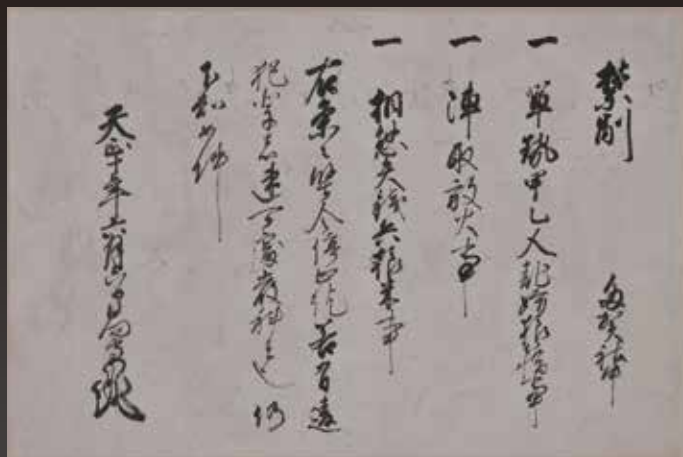 禁制　多賀社
一 軍勢甲乙人乱妨狼藉事
一 陣取放火事
一 相懸矢銭兵粮米事
右条々堅令停止訖若有違
犯輩者速可處厳科者也仍
下知如件
天正十年六月六日日向守